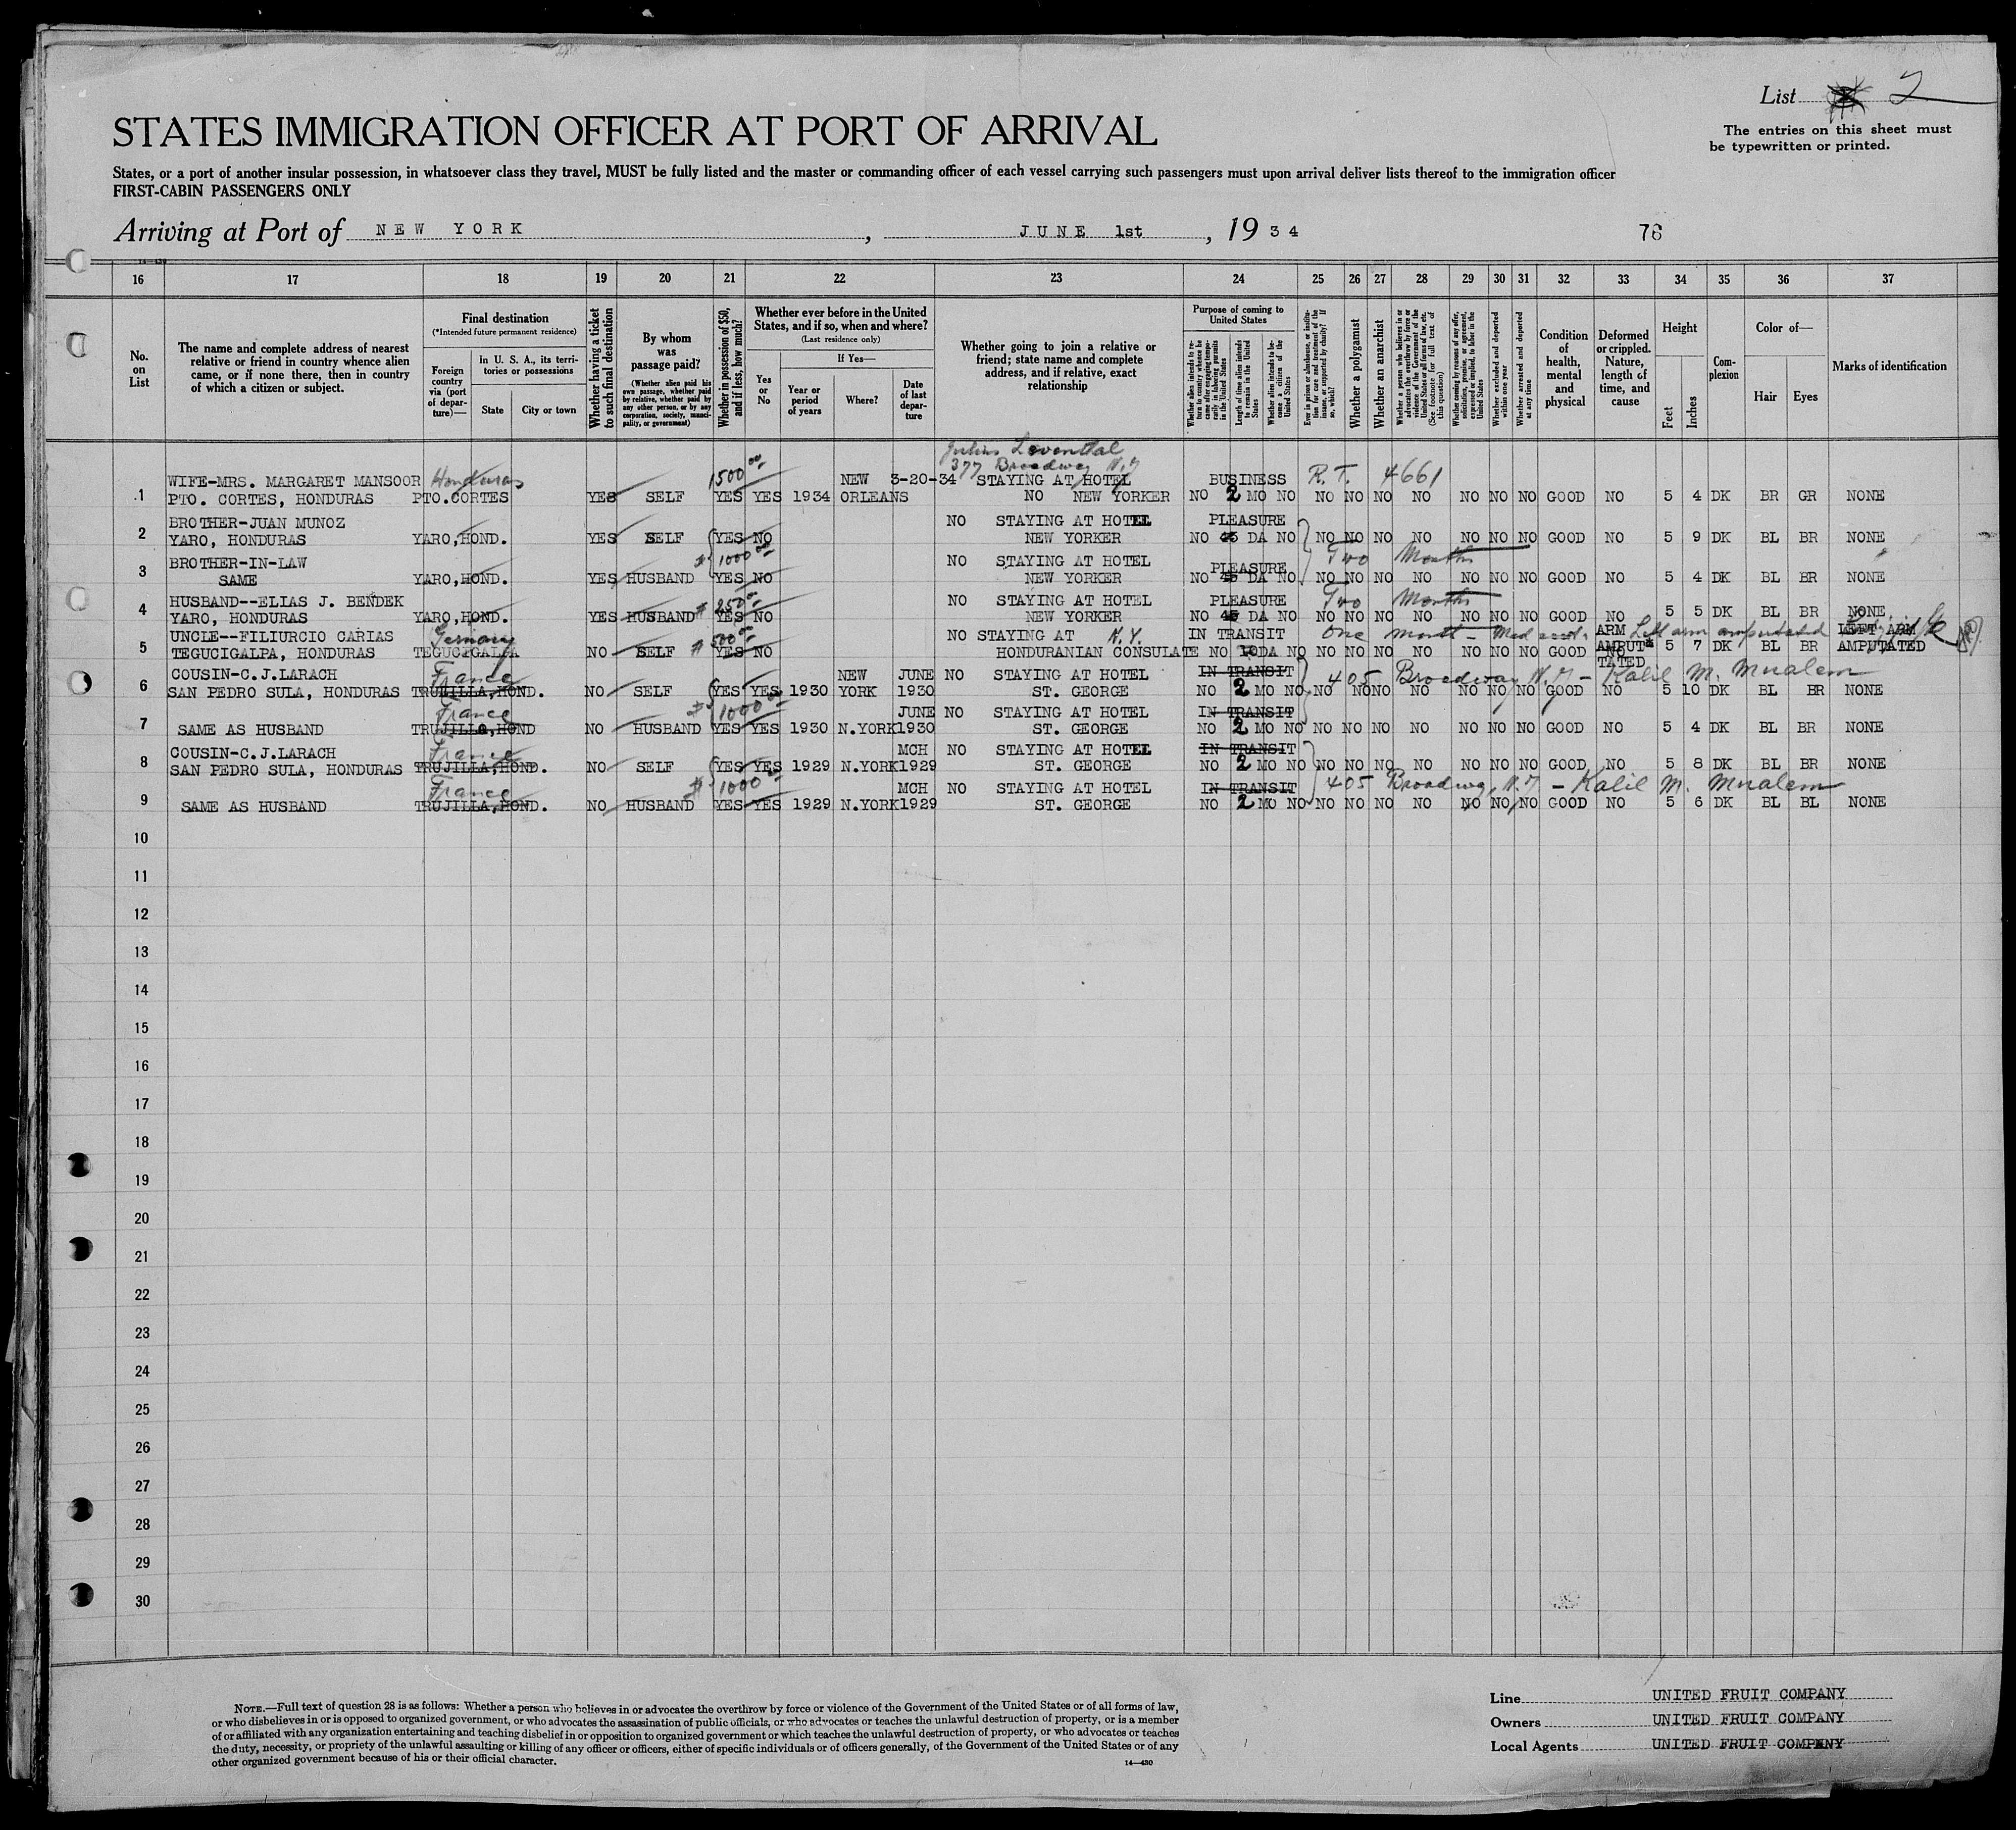 List 2
The entries on this sheet must
be typewritten or printed.
STATES IMMIGRATION OFFICER AT PORT OF ARRIVAL
States, or a port of another insular possession, in whatsoever class they travel, MUST be fully listed and the master or commanding officer of each vessel carrying such passengers must upon arrival deliver lists thereof to the immigration officer
FIRST-CABIN PASSENGERS ONLY
Arriving at Port of NEW YORK, JUNE 1st, 1934 76
16 17 18 19 20 21 22 23 24 25 26 27 28 29 30 31 32 33 34 35 36 37
No. on List
The name and complete address of nearest relative or friend in country whence alien came, or if none there, then in country of which a citizen or subject.
Final destination
(*Intended future permanent residence)
Foreign country via (port of departure)—
in U. S. A., its territories or possessions
State
City or town
Whether having a ticket to such final destination
By whom was passage paid?
(Whether alien paid his own passage, whether paid by relative, whether paid by any other person, or by any corporation, society, municipality, or government)
Whether in possession of $50, and if less, how much?
Whether ever before in the United States, and if so, when and where?
(Last residence only)
Yes or No
If Yes—
Year or period of years
Where?
Date of last departure
Whether going to join a relative or friend; state name and complete address, and if relative, exact relationship
Purpose of coming to United States
Whether alien intends to return to country whence he came after engaging temporarily in laboring pursuits in the United States
Length of time alien intends to remain in the United States
Whether alien intends to become a citizen of the United States
Ever in prison or almshouse, or institution for care and treatment of the insane, or supported by charity? If so, which?
Whether a polygamist
Whether an anarchist
Whether a person who believes in or advocates the overthrow by force or violence of the Government of the United States or all forms of law, etc. (See footnote for full text of this question)
Whether coming by reasons of any offer, solicitation, promise, or agreement, expressed or implied, to labor in the United States
Whether excluded and deported within one year
Whether arrested and deported at any time
Condition of health, mental and physical
Deformed or crippled. Nature, length of time, and cause
Height
Feet
Inches
Complexion
Color of—
Hair
Eyes
Marks of identification
Julius Leventhal
377 Broadway N.Y
WIFE-MRS. MARGARET MANSOOR Honduras 1500 00 NEW 3-20-34 STAYING AT HOTEL BUSINESS R.T. 4661
1 PTO. CORTES, HONDURAS PTO.CORTES YES SELF YES YES 1934 ORLEANS NO NEW YORKER NO 2 MO NO NO NO NO NO NO NO NO GOOD NO 5 4 DK BR GR NONE
BROTHER-JUAN MUNOZ NO STAYING AT HOTEL PLEASURE
2 YARO, HONDURAS YARO,HOND. YES SELF YES NO NEW YORKER NO 45 DA NO NO NO NO NO NO NO NO GOOD NO 5 9 DK BL BR NONE
BROTHER-IN-LAW $1000 00 NO STAYING AT HOTEL PLEASURE Two Months
3 SAME YARO,HOND. YES HUSBAND YES NO NEW YORKER NO 45 DA NO NO NO NO NO NO NO NO GOOD NO 5 4 DK BL BR NONE
HUSBAND--ELIAS J. BENDEK $250 00 NO STAYING AT HOTEL PLEASURE Two Months
4 YARO, HONDURAS YARO,HOND. YES HUSBAND YES NO NEW YORKER NO 45 DA NO NO NO NO NO NO NO NO GOOD NO 5 5 DK BL BR NONE
UNCLE--FILIURCIO CARIAS Germany $500 00 NO STAYING AT N.Y. IN TRANSIT One month - Med cert. ARM Left arm amputated LEFT ARM
5 TEGUCIGALPA, HONDURAS TEGUCIGALPA NO SELF YES NO HONDURANIAN CONSULATE NO 10DA NO NO NO NO NO NO NO NO GOOD NO AMPUT- 5 7 DK BL BR AMPUTATED
TATED
COUSIN-C.J.LARACH France NEW JUNE NO STAYING AT HOTEL IN TRANSIT 405 Broadway N.Y - Kalil M. Mualem
6 SAN PEDRO SULA, HONDURAS TRUJILLA,HOND. NO SELF YES YES 1930 YORK 1930 ST. GEORGE NO 2 MO NO NO NO NO NO NO NO NO GOOD NO 5 10 DK BL BR NONE
France $1000 00 JUNE NO STAYING AT HOTEL IN TRANSIT
7 SAME AS HUSBAND TRUJILLA,HOND NO HUSBAND YES YES 1930 N.YORK 1930 ST. GEORGE NO 2 MO NO NO NO NO NO NO NO NO GOOD NO 5 4 DK BL BR NONE
COUSIN-C.J.LARACH France MCH NO STAYING AT HOTEL IN TRANSIT
8 SAN PEDRO SULA, HONDURAS TRUJILLA,HOND. NO SELF YES YES 1929 N.YORK 1929 ST. GEORGE NO 2 MO NO NO NO NO NO NO NO NO GOOD NO 5 8 DK BL BR NONE
France $1000 MCH NO STAYING AT HOTEL IN TRANSIT 405 Broadway, N.Y. - Kalil M. Mualem
9 SAME AS HUSBAND TRUJILLA,HOND. NO HUSBAND YES YES 1929 N.YORK 1929 ST. GEORGE NO 2 MO NO NO NO NO NO NO NO NO GOOD NO 5 6 DK BL BL NONE
10
11
12
13
14
15
16
17
18
19
20
21
22
23
24
25
26
27
28
29
30
NOTE.—Full text of question 28 is as follows: Whether a person who believes in or advocates the overthrow by force or violence of the Government of the United States or of all forms of law,
or who disbelieves in or is opposed to organized government, or who advocates the assassination of public officials, or who advocates or teaches the unlawful destruction of property, or is a member
of or affiliated with any organization entertaining and teaching disbelief in or opposition to organized government or which teaches the unlawful destruction of property, or who advocates or teaches
the duty, necessity, or propriety of the unlawful assaulting or killing of any officer or officers, either of specific individuals or of officers generally, of the Government of the United States or of any
other organized government because of his or their official character.
14—430
Line UNITED FRUIT COMPANY
Owners UNITED FRUIT COMPANY
Local Agents UNITED FRUIT COMPANY